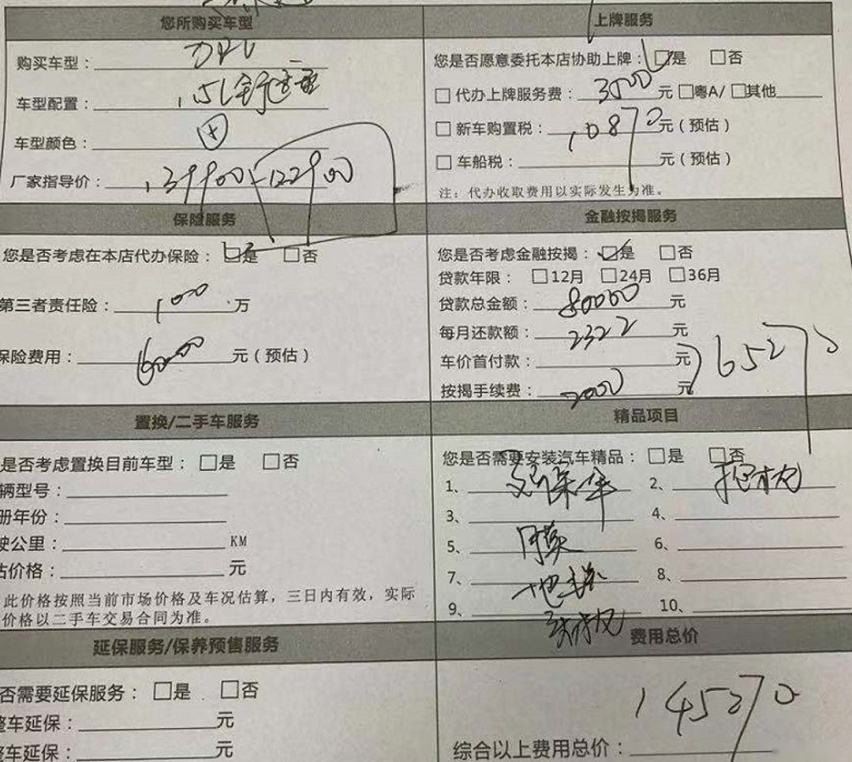 您所购买车型
购买车型：
车型配置：1.5L
车型颜色：
厂家指导价：139900-122900
上牌服务
您是否愿意委托本店协助上牌：☑是 □否
□代办上牌服务费：3500元 □粤A/ □其他
□新车购置税：10870元（预估）
□车船税：元（预估）
注：代办收取费用以实际发生为准。
保险服务
您是否考虑在本店代办保险：☑是 □否
第三者责任险：100万
保险费用：6000元（预估）
金融按揭服务
您是否考虑金融按揭：☑是 □否
贷款年限：□12月 □24月 □36月
贷款总金额：80000元
每月还款额：2322元
车价首付款：元
按揭手续费：2000元
65270
置换/二手车服务
是否考虑置换目前车型：□是 □否
辆型号：
册年份：
驶公里：KM
估价格：元
此价格按照当前市场价格及车况估算，三日内有效，实际
价格以二手车交易合同为准。
精品项目
您是否需要安装汽车精品：□是 □否
1、
2、
3、
4、
5、膜
6、
7、地毯
8、
9、
10、
延保服务/保养预售服务
否需要延保服务：□是 □否
整车延保：元
整车延保：元
费用总价
综合以上费用总价：145270